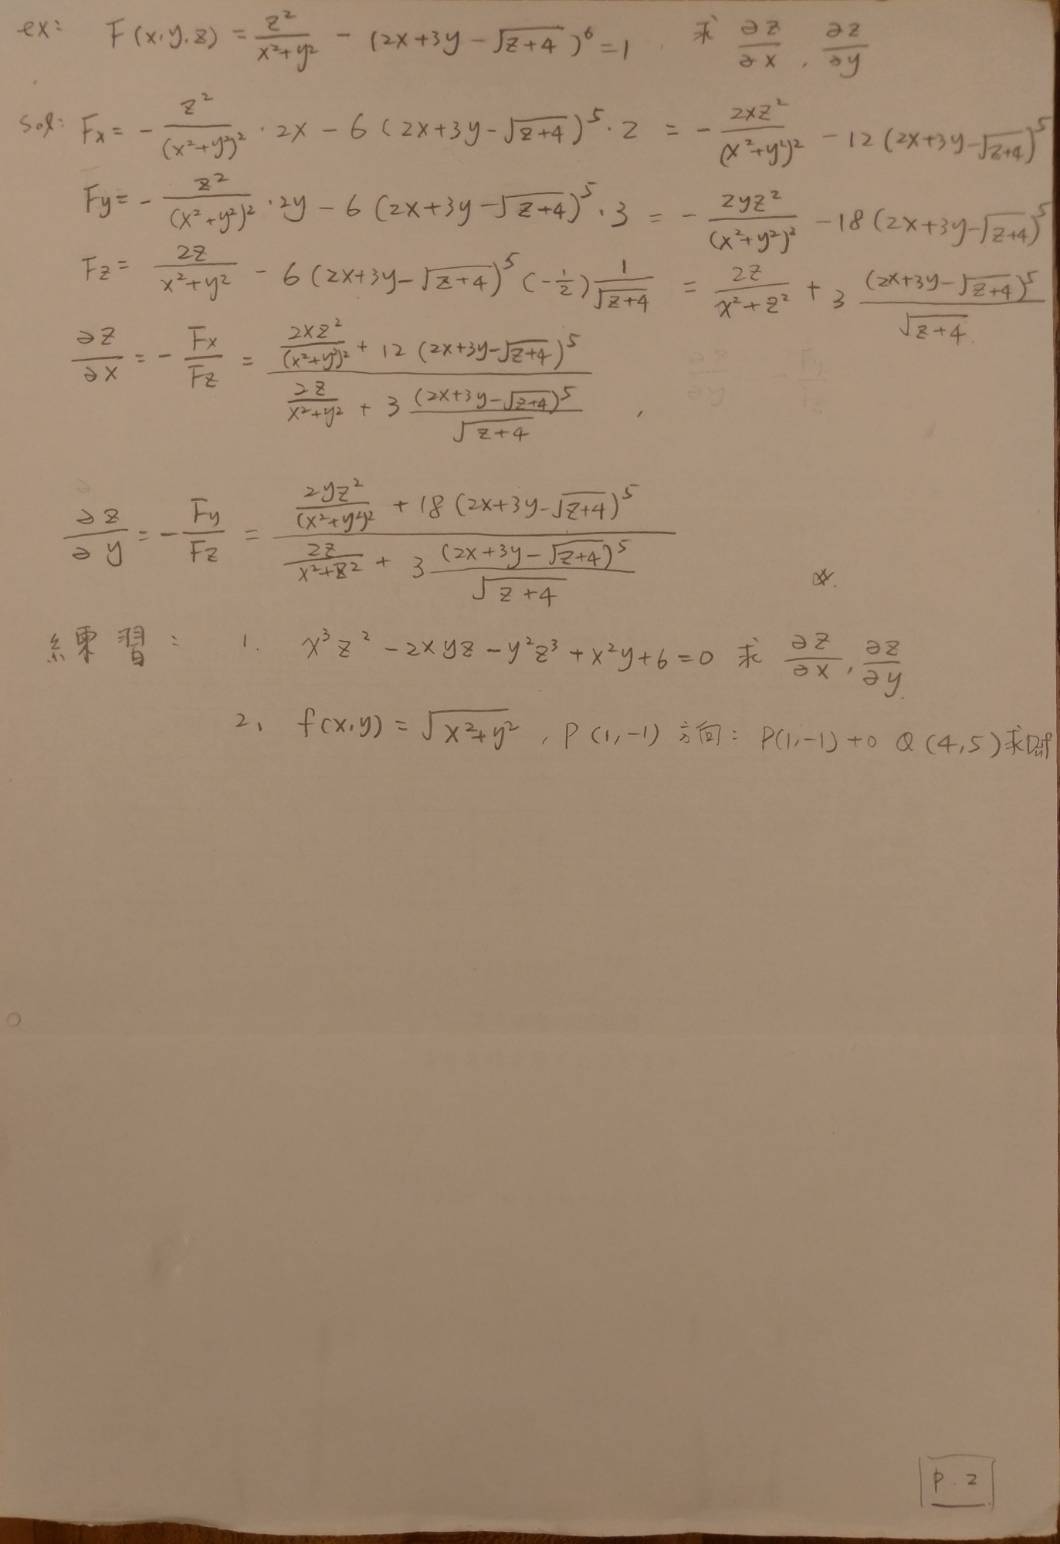 ex: F(x,y,z) = z²/(x²+y²) - (2x+3y-√(z+4))⁶ = 1 . 求 ∂z/∂x , ∂z/∂y
sol: Fx = - z²/(x²+y²)² · 2x - 6(2x+3y-√(z+4))⁵ · 2 = - 2xz²/(x²+y²)² - 12(2x+3y-√(z+4))⁵
Fy = - z²/(x²+y²)² · 2y - 6(2x+3y-√(z+4))⁵ · 3 = - 2yz²/(x²+y²)² - 18(2x+3y-√(z+4))⁵
Fz = 2z/(x²+y²) - 6(2x+3y-√(z+4))⁵ (-1/2) 1/√(z+4) = 2z/(x²+z²) + 3 (2x+3y-√(z+4))⁵/√(z+4)
∂z/∂x = - Fx/Fz = (2xz²/(x²+y²)² + 12(2x+3y-√(z+4))⁵)/(2z/(x²+y²) + 3 (2x+3y-√(z+4))⁵/√(z+4)) ,
∂z/∂y = - Fy/Fz = (2yz²/(x²+y²)² + 18(2x+3y-√(z+4))⁵)/(2z/(x²+z²) + 3 (2x+3y-√(z+4))⁵/√(z+4))
練習: 1. x³z² - 2xyz - y²z³ + x²y + 6 = 0 求 ∂z/∂x , ∂z/∂y.
2、 f(x,y) = √(x²+y²) , P(1,-1) 方向: P(1,-1) to Q(4,5) 求Duf
P.2